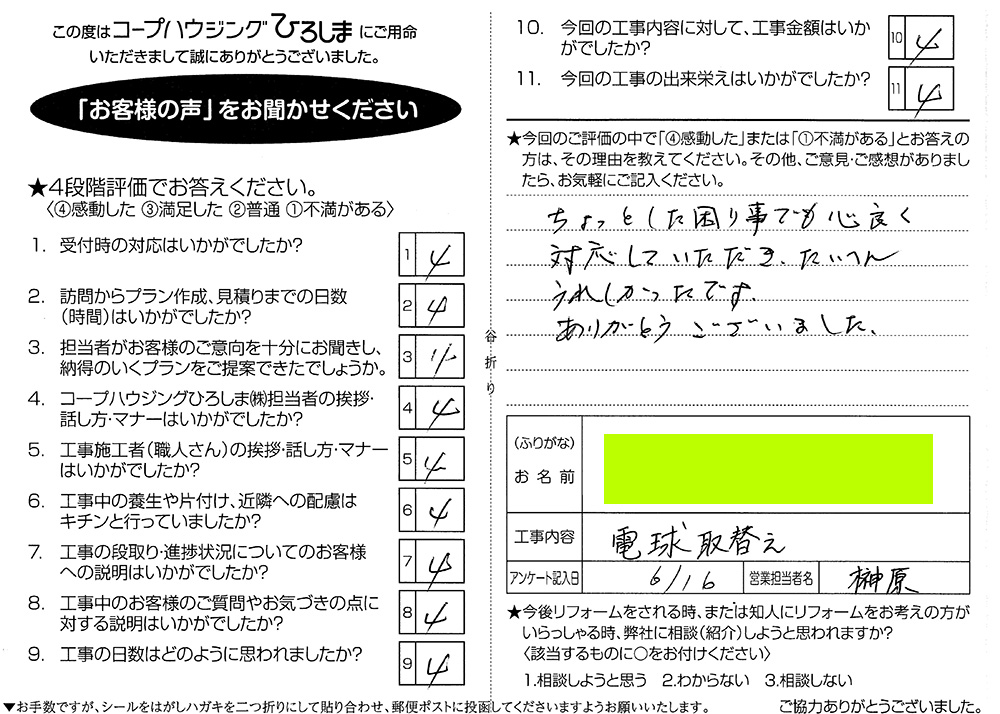 この度はコープハウジングひろしまにご用命
いただきまして誠にありがとうございました。
「お客様の声」をお聞かせください
★4段階評価でお答えください。
〈④感動した ③満足した ②普通 ①不満がある〉
1. 受付時の対応はいかがでしたか?
1 4
2. 訪問からプラン作成、見積りまでの日数
(時間)はいかがでしたか?
2 4
3. 担当者がお客様のご意向を十分にお聞きし、
納得のいくプランをご提案できたでしょうか。
3 4
4. コープハウジングひろしま㈱担当者の挨拶・
話し方・マナーはいかがでしたか?
4 4
5. 工事施工者(職人さん)の挨拶・話し方・マナー
はいかがでしたか?
5 4
6. 工事中の養生や片付け、近隣への配慮は
キチンと行っていましたか?
6 4
7. 工事の段取り・進捗状況についてのお客様
への説明はいかがでしたか?
7 4
8. 工事中のお客様のご質問やお気づきの点に
対する説明はいかがでしたか?
8 4
9. 工事の日数はどのように思われましたか?
9 4
▼お手数ですが、シールをはがしハガキを二つ折りにして貼り合わせ、郵便ポストに投函してくださいますようお願いいたします。
谷折り
10. 今回の工事内容に対して、工事金額はいか
がでしたか?
10 4
11. 今回の工事の出来栄えはいかがでしたか?
11 4
★今回のご評価の中で「④感動した」または「①不満がある」とお答えの
方は、その理由を教えてください。その他、ご意見・ご感想がありまし
たら、お気軽にご記入ください。
ちょっとした困り事でも心良く
対応していただき、たいへん
うれしかったです。
ありがとうございました。
(ふりがな)
お名前
工事内容 電球取替え
アンケート記入日 6/16 営業担当者名 榊原
★今後リフォームをされる時、または知人にリフォームをお考えの方が
いらっしゃる時、弊社に相談(紹介)しようと思われますか?
〈該当するものに○をお付けください〉
1.相談しようと思う 2.わからない 3.相談しない
ご協力ありがとうございました。